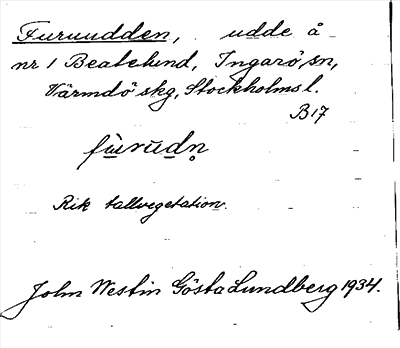 Furuudden, udde å
nr 1 Beatelund, Ingarö sn,
Värmdö skg, Stockholms l.
B17
fùrudṇ
Rik tallvegetation.
John Westin Gösta Lundberg 1934.